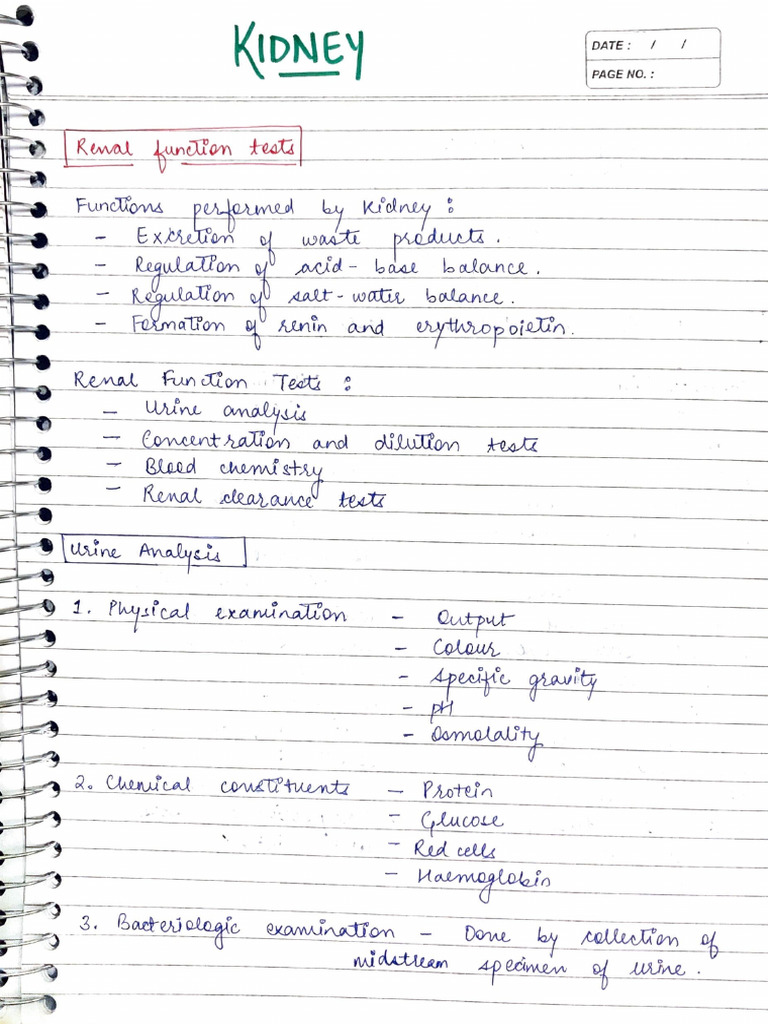 KIDNEY
DATE : / /
PAGE NO. :
Renal function tests
Functions performed by Kidney :
- Excretion of waste products.
- Regulation of acid-base balance.
- Regulation of salt-water balance.
- Formation of renin and erythropoietin.
Renal Function Tests :
- Urine analysis
- Concentration and dilution tests
- Blood chemistry
- Renal clearance tests
Urine Analysis
1. Physical examination - Output
- Colour
- Specific gravity
- pH
- Osmolality
2. Chemical constituents - Protein
- Glucose
- Red cells
- Haemoglobin
3. Bacteriologic examination - Done by collection of
midstream specimen of urine.